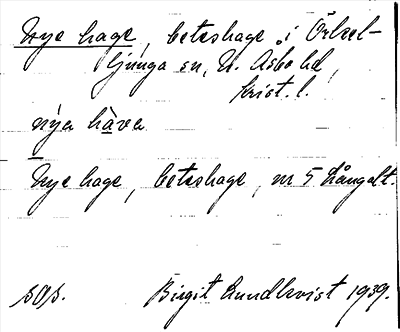 Nye hage, beteshage i Örkel-
ljunga sn, N. Åsbo hd,
Krist. l.
nýa hàva
Nye hage, beteshage, nr 5 Långalt.
sOs.   Birgit Lundkvist 1939.